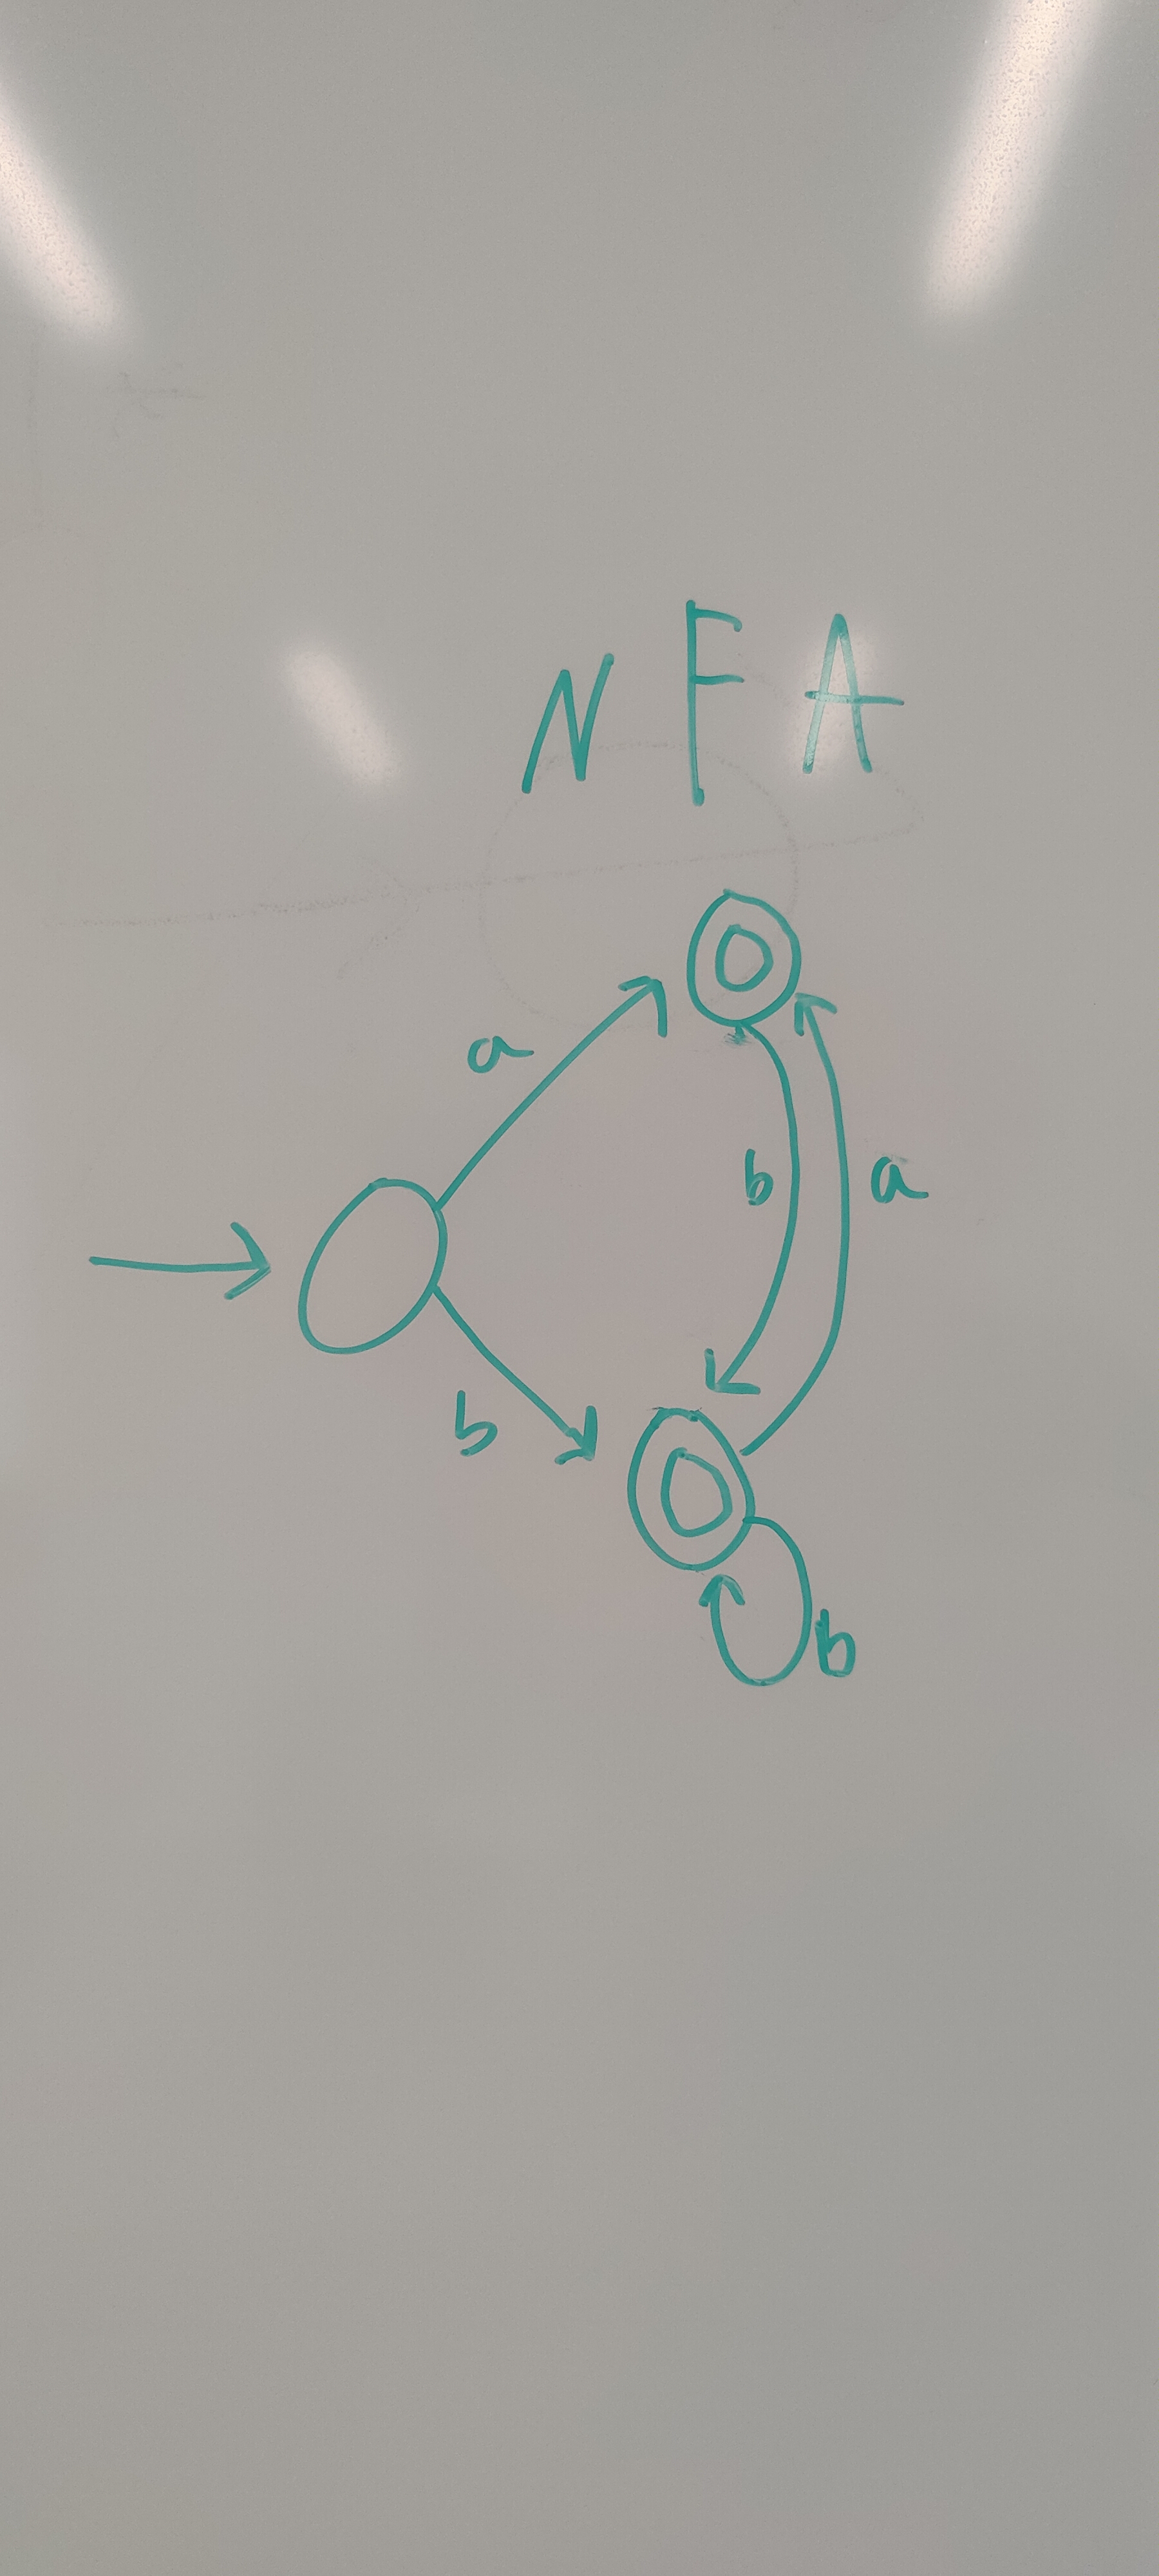 NFA
a
b a
b
b